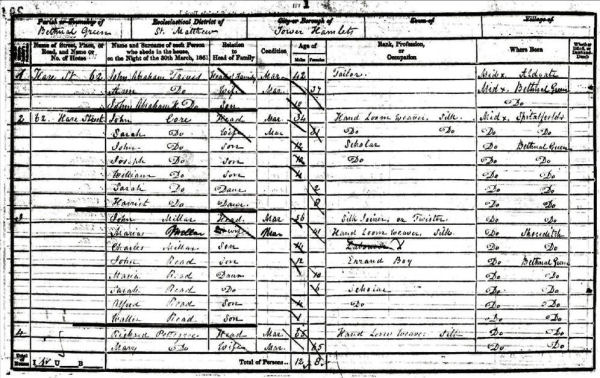 1
Parish or Township of
Ecclesiastical District of
City or Borough of
Town of
Village of
Bethnal Green
St. Matthew
Tower Hamlets
Name of Street, Place, or Road, and Name or No. of House
Name and Surname of each Person who abode in the house, on the Night of the 30th March, 1851
Relation to Head of Family
Condition
Age of
Males
Females
Rank, Profession, or Occupation
Where Born
Whether Blind, or Deaf-and-Dumb
1 Hare St 62 John Abraham Head of Family Mar 42 Tailor Midx. Aldgate
Do Wife Mar 37 Midx. Bethnal Green
John Abraham Do Son 10 Do
2 62 Hare Street John Head Mar 34 Hand Loom Weaver Silk Midx. Spitalfields
Sarah Do Wife Mar Do Do Do Do
John Do Son 12 Scholar Do Bethnal Green
Joseph Do Son Do Do Do
William Do Son 4 Do Do
Sarah Do Daur 2 Do Do
Harriet Do Daur Do Do
3 John Millar Head Mar 36 Silk Joiner or Twister Do Do
Maria Millar Wife Mar 41 Hand Loom Weaver Silk Do Shoreditch
Charles Millar Son Do Do
John Read Son 12 Errand Boy Do Bethnal Green
Maria Read Daur 10 Do Do
Sarah Read Do Scholar Do Do
Alfred Read Son 4 Do Do Do
Walter Read Son Do Do
4 Richard Head Mar Hand Loom Weaver Silk Do Do
Mary Do Wife Mar 65 Do Do
Total of Houses
U
B
Total of Persons
12
8